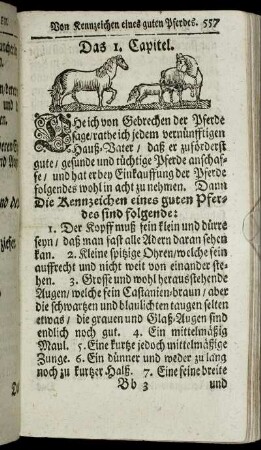 Von Kennzeichen eines guten Pferdes. 557
Das 1. Capitel.
EHe ich von Gebrechen der Pferde
sage/rathe ich jedem vernünfftigen
Hauß-Vater / daß er zuförderst
gute/ gesunde und tüchtige Pferde anschaf-
fe / und hat er bey Einkauffung der Pferde
folgendes wohl in acht zu nehmen. Dann
Die Kennzeichen eines guten Pfer-
des sind folgende:
1. Der Kopff muß fein klein und dürre
seyn/ daß man fast alle Adern daran sehen
kan. 2. Kleine spitzige Ohren/welche fein
auffrecht und nicht weit von einander ste-
hen. 3. Grosse und wohl herausstehende
Augen/ welche fein Castanien-braun/ aber
die schwartzen und blaulichten taugen selten
etwas / die grauen und Glaß-Augen sind
endlich noch gut. 4. Ein mittelmäßig
Maul. 5. Eine kurtze jedoch mittelmäßige
Zunge. 6. Ein dünner und weder zu lang
noch zu kurtzer Halß. 7. Eine feine breite
Bb 3 und